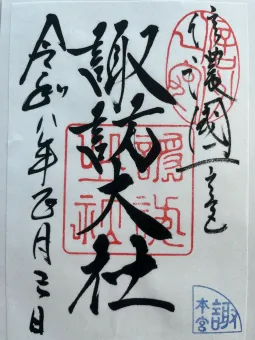 信濃國一之宮
諏訪大社
令和八年正月三日
諏訪大社
諏
本宮